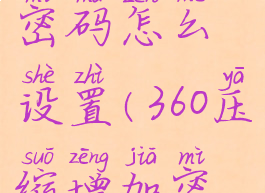 密码怎么
shè zhì yā
设置(360压
suō zēng jiā mì
缩增加密